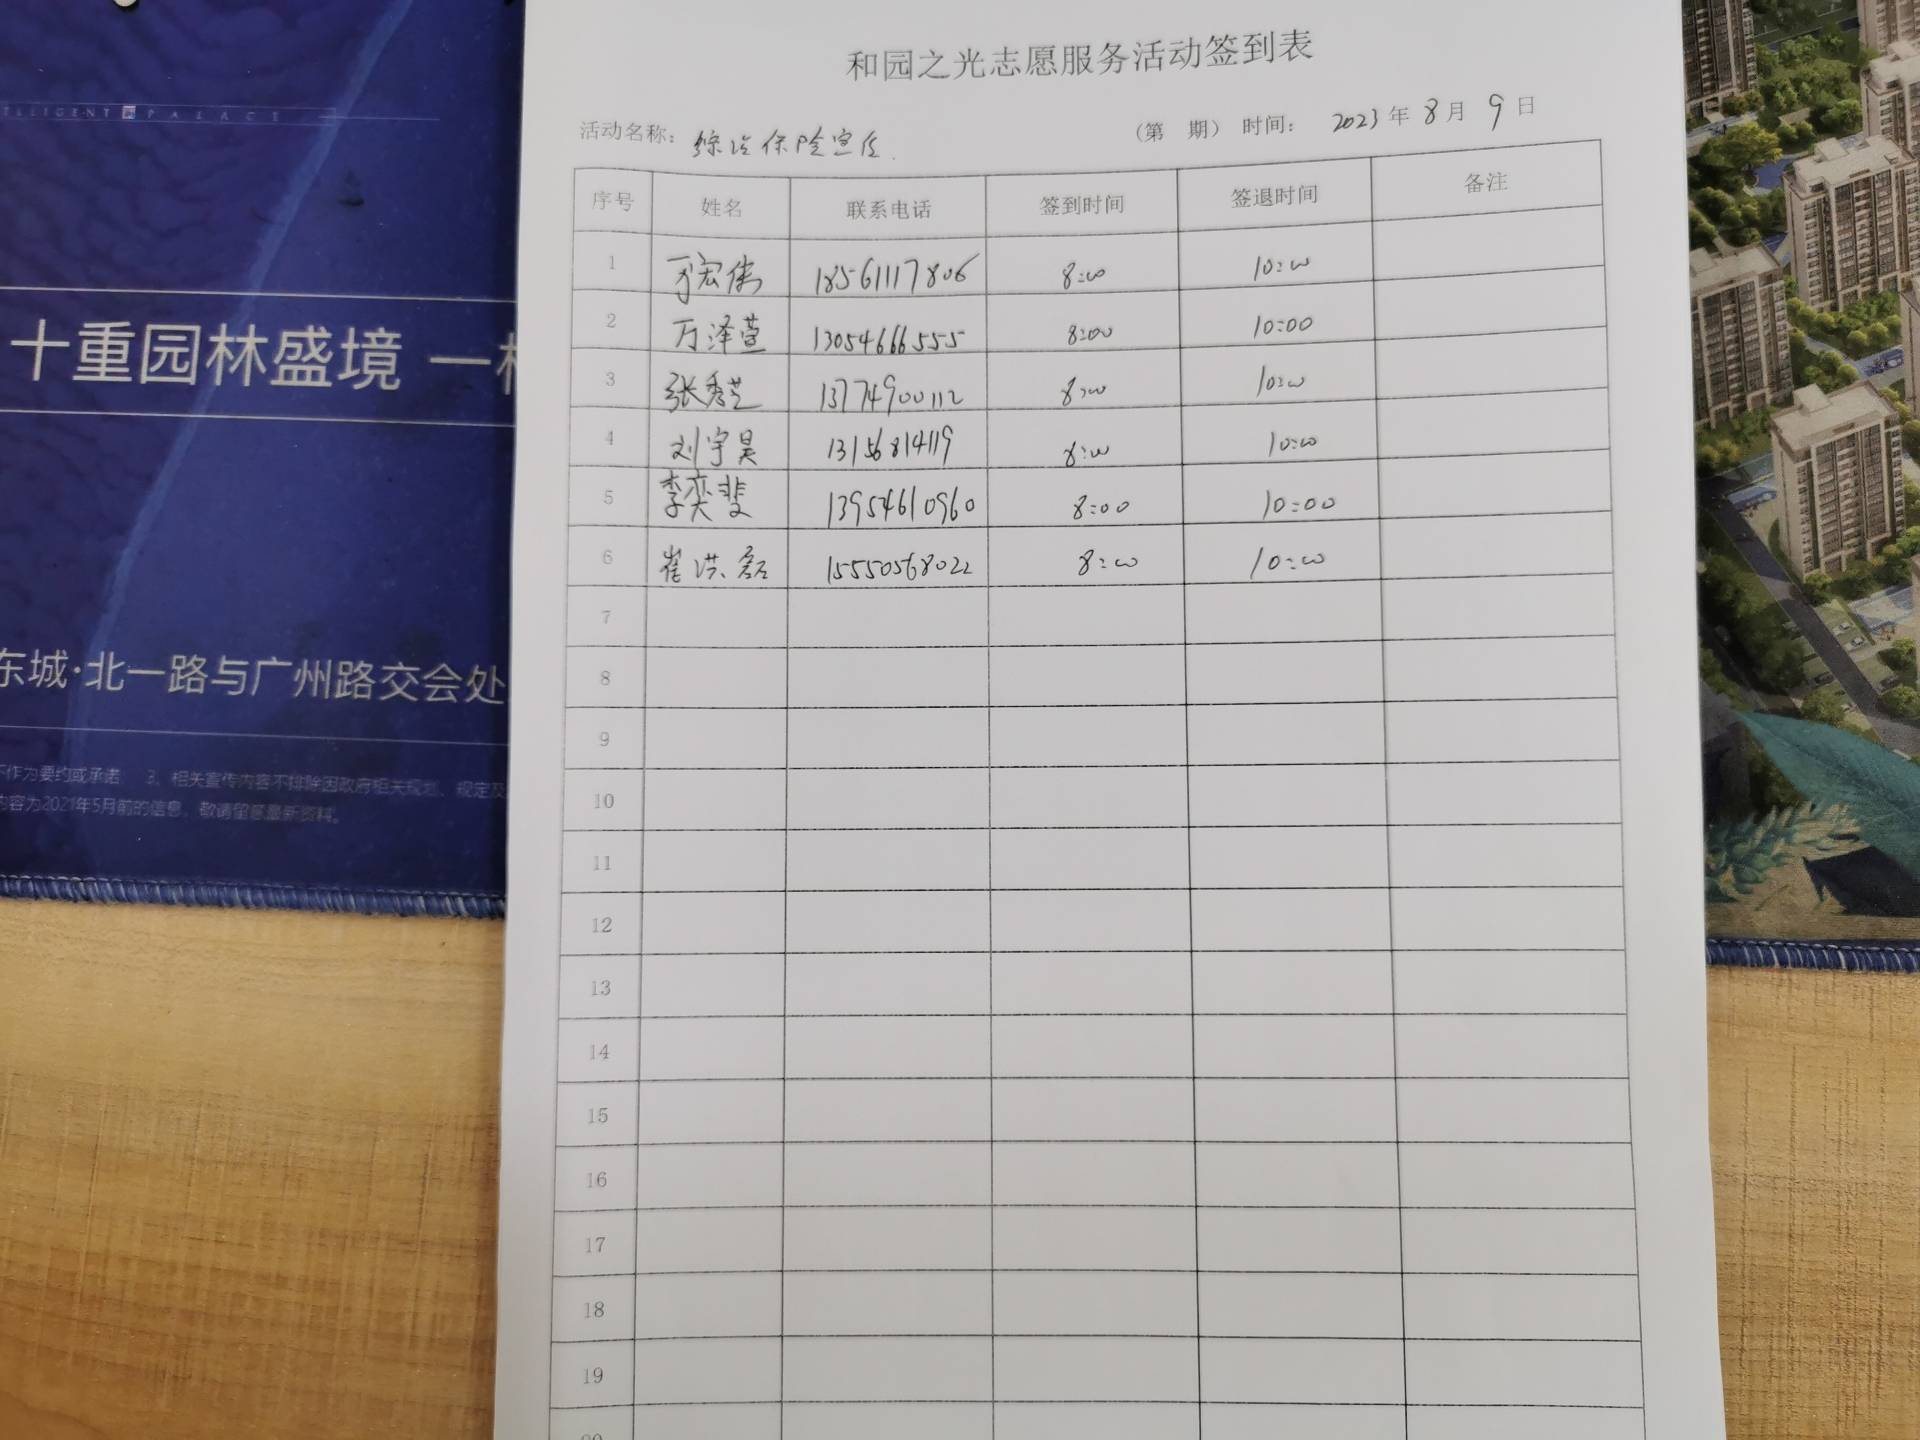 和园之光志愿服务活动签到表
活动名称: 综治保险宣传. (第 期) 时间: 2023年8月9日
序号 姓名 联系电话 签到时间 签退时间 备注
1 宏伟 18561117806 8:00 10:00
2 万泽萱 13054666555 8:00 10:00
3 张秀芝 13774900112 8:00 10:00
4 刘宇昊 13156814119 8:00 10:00
5 李奕斐 13954610960 8:00 10:00
6 崔洪磊 15550568022 8:00 10:00
7
8
9
10
11
12
13
14
15
16
17
18
19
20
TELLIGENT PALACE
十重园林盛境 一
东城·北一路与广州路交会处
不作为要约或承诺 3、相关宣传内容不排除因政府相关规划、规定及
内容为2021年5月前的信息，敬请留意最新资料。